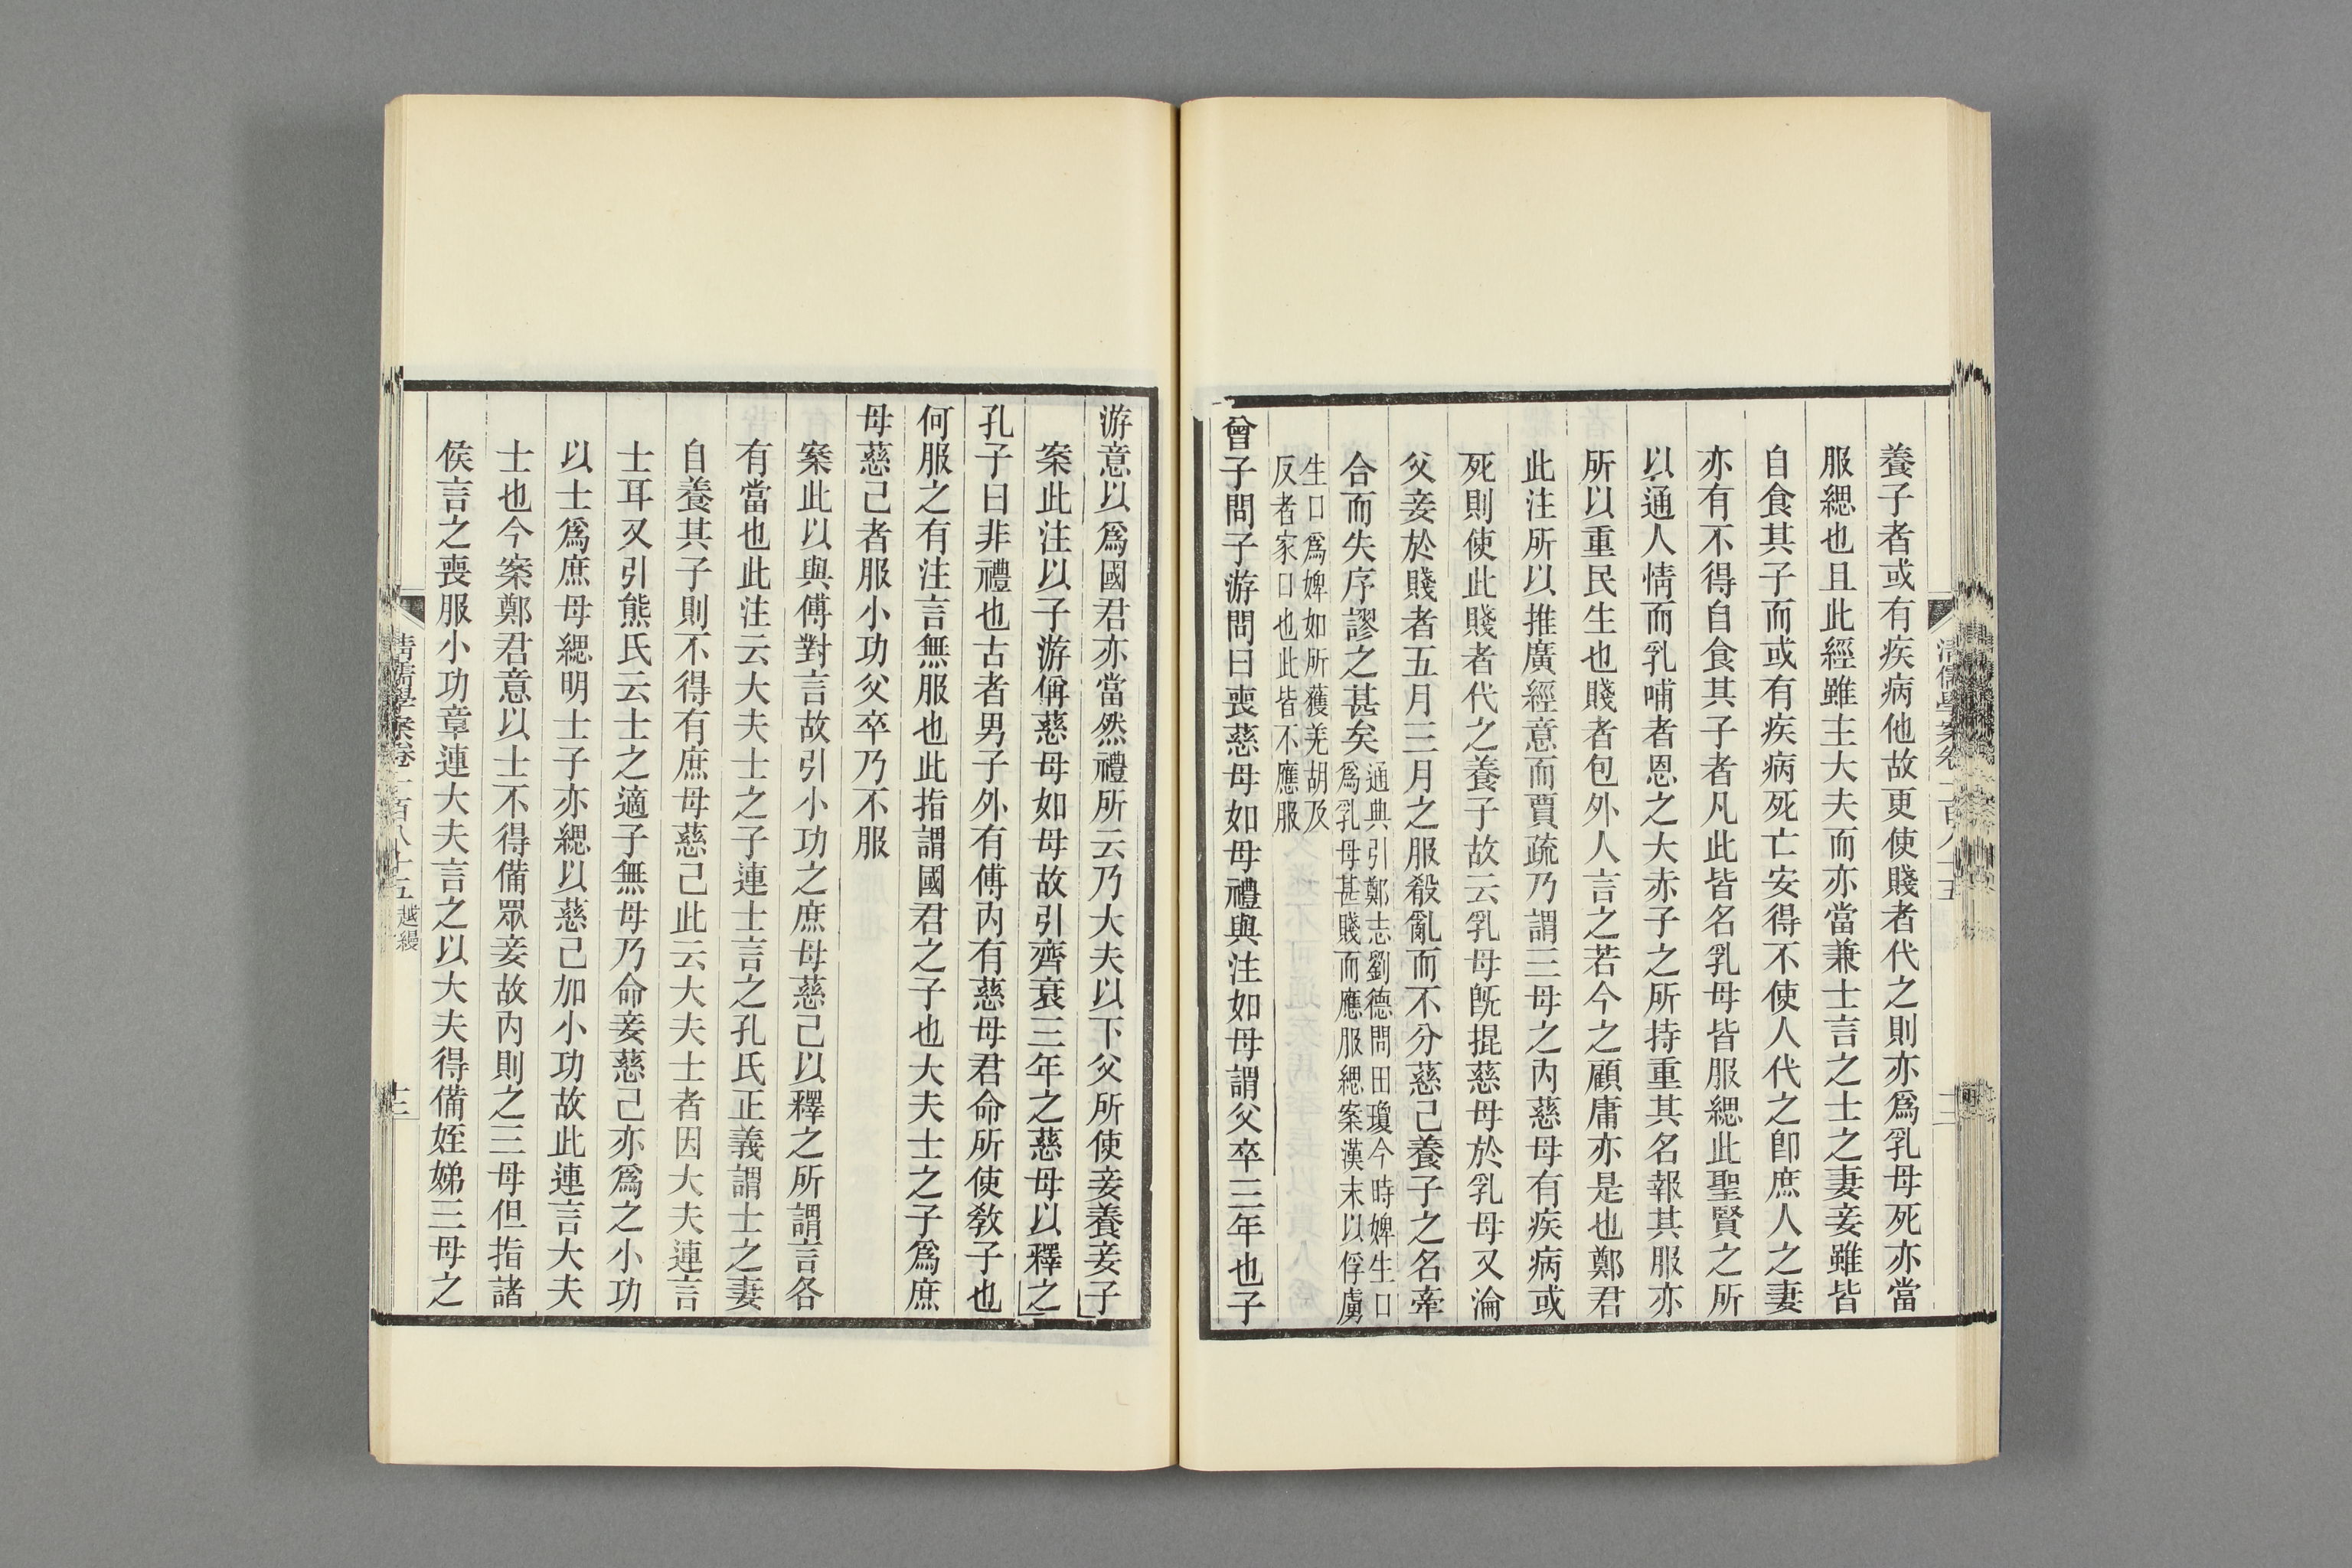 養子者或有疾病他故更使賤者代之則亦爲乳母死亦當
服緦也且此經雖主大夫而亦當兼士言之士之妻妾雖皆
自食其子而或有疾病死亡安得不使人代之卽庶人之妻
亦有不得自食其子者凡此皆名乳母皆服緦此聖賢之所
以通人情而乳哺者恩之大赤子之所持重其名報其服亦
所以重民生也賤者包外人言之若今之顧庸亦是也鄭君
此注所以推廣經意而賈疏乃謂三母之內慈母有疾病或
死則使此賤者代之養子故云乳母旣掍慈母於乳母又淪
父妾於賤者五月三月之服殽亂而不分慈己養子之名牽
合而失序謬之甚矣
通典引鄭志劉德問田瓊今時婢生口
爲乳母甚賤而應服緦案漢末以俘虜
生口爲婢如所獲羌胡及
反者家口也此皆不應服
曾子問子游問曰喪慈母如母禮與注如母謂父卒三年也子
游意以爲國君亦當然禮所云乃大夫以下父所使妾養妾子
案此注以子游偁慈母如母故引齊衰三年之慈母以釋之
孔子曰非禮也古者男子外有傅內有慈母君命所使敎子也
何服之有注言無服也此指謂國君之子也大夫士之子爲庶
母慈己者服小功父卒乃不服
案此以與傅對言故引小功之庶母慈己以釋之所謂言各
有當也此注云大夫士之子連士言之孔氏正義謂士之妻
自養其子則不得有庶母慈己此云大夫士者因大夫連言
士耳又引熊氏云士之適子無母乃命妾慈己亦爲之小功
以士爲庶母緦明士子亦緦以慈己加小功故此連言大夫
士也今案鄭君意以士不得備眾妾故內則之三母但指諸
侯言之喪服小功章連大夫言之以大夫得備姪娣三母之
清儒學案卷一百八十五 越縵
十三